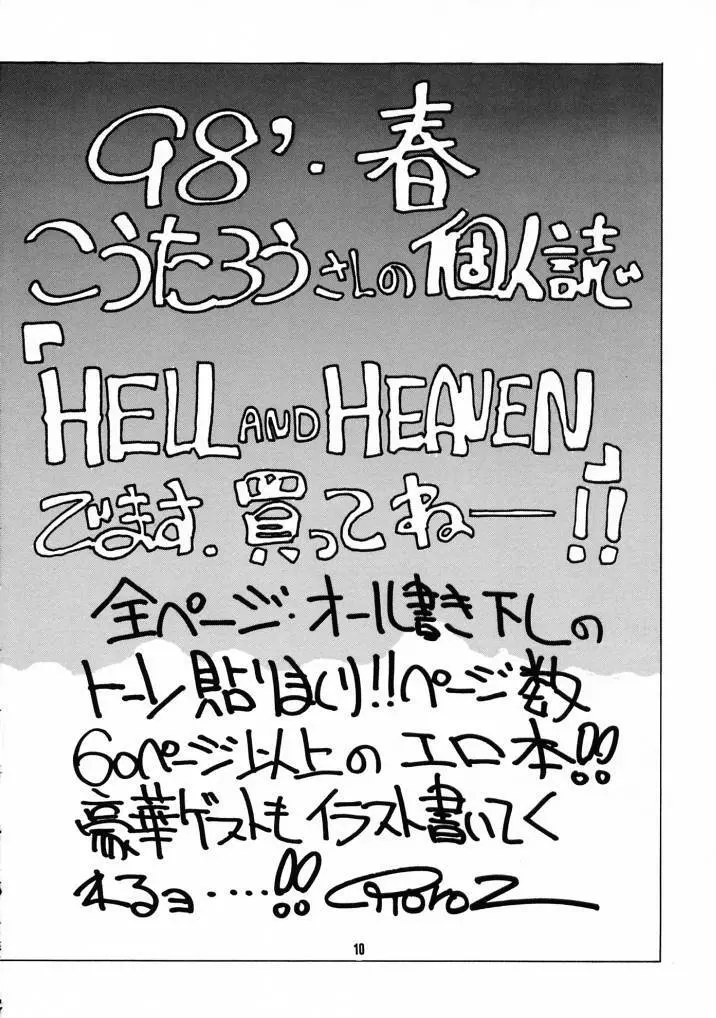 98'.春
こうたろうさんの個人誌
『HELL AND HEAVEN』
でます.買ってねー!!
全ページ・オール書き下しの
トーン貼りまくり!!ページ数
60ページ以上のエロ本!!
豪華ゲストもイラスト書いてく
れるヨ....!!
10